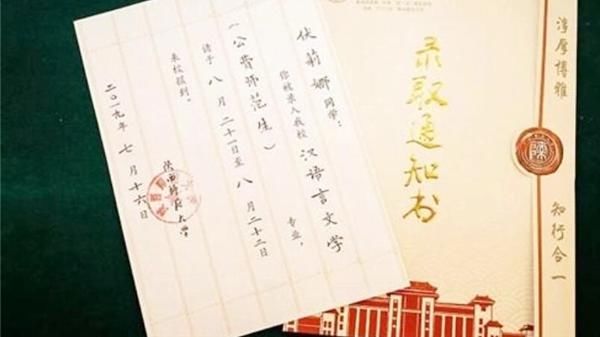 伏莉娜 同学：
你被录入我校 汉语言文学 专业，
（公费师范生）
请于 八 月 二十一日至 八 月 二十二日
来校报到。
陕西师范大学
二〇一九年 七 月 十六日
录取通知书
淳厚博雅
知行合一